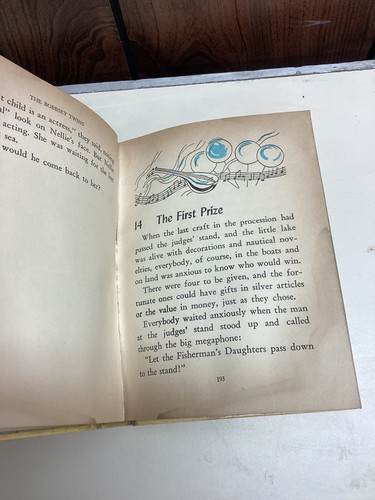 THE BOBBSEY TWINS
t child is an actress," they said,
look on Nellie's face. But
acting. She was waiting for the
sea.
would he come back to her?
14 The First Prize
When the last craft in the procession had
passed the judges' stand, and the little lake
was alive with decorations and nautical nov-
elties, everybody, of course, in the boats and
on land was anxious to know who would win.
There were four to be given, and the for-
tunate ones could have gifts in silver articles
or the value in money, just as they chose.
Everybody waited anxiously when the man
at the judges' stand stood up and called
through the big megaphone:
"Let the Fisherman's Daughters pass down
to the stand!"
193